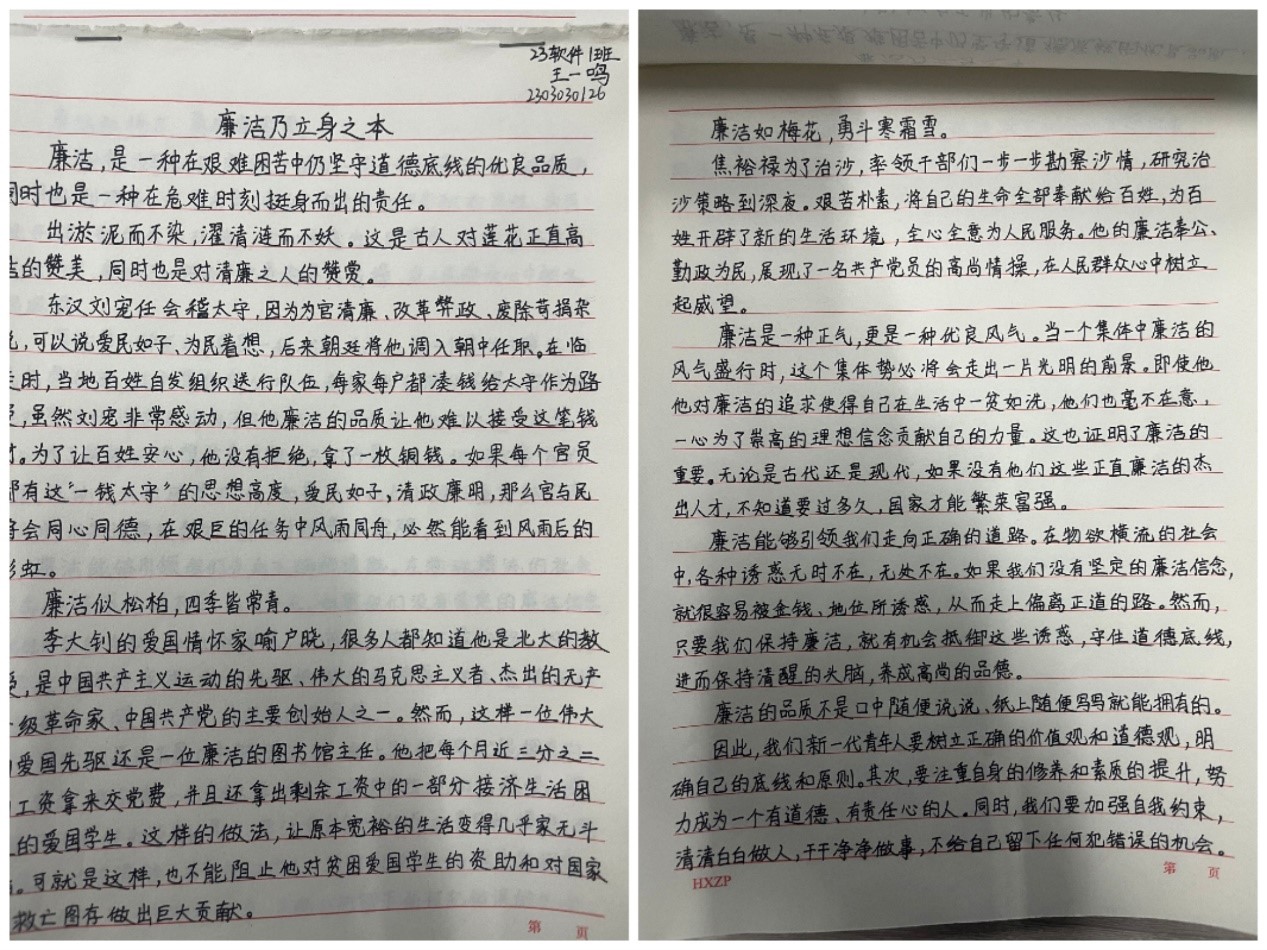 23软件1班
王一鸣
2303030126
廉洁乃立身之本
廉洁,是一种在艰难困苦中仍坚守道德底线的优良品质,
同时也是一种在危难时刻挺身而出的责任。
出淤泥而不染,濯清涟而不妖。这是古人对莲花正直高
洁的赞美,同时也是对清廉之人的赞赏。
东汉刘宠任会稽太守,因为为官清廉、改革弊政、废除苛捐杂
税,可以说爱民如子、为民着想,后来朝廷将他调入朝中任职。在临
走时,当地百姓自发组织送行队伍,每家每户都凑钱给太守作为路
费,虽然刘宠非常感动,但他廉洁的品质让他难以接受这笔钱
财。为了让百姓安心,他没有拒绝,拿了一枚铜钱。如果每个官员
都有这“一钱太守”的思想高度,爱民如子,清政廉明,那么官与民
将会同心同德,在艰巨的任务中风雨同舟,必然能看到风雨后的
彩虹。
廉洁似松柏,四季皆常青。
李大钊的爱国情怀家喻户晓,很多人都知道他是北大的教
授,是中国共产主义运动的先驱、伟大的马克思主义者、杰出的无产
阶级革命家、中国共产党的主要创始人之一。然而,这样一位伟大
的爱国先驱还是一位廉洁的图书馆主任。他把每个月近三分之二
的工资拿来交党费,并且还拿出剩余工资中的一部分接济生活困
的爱国学生。这样的做法,让原本宽裕的生活变得几乎家无斗
。可就是这样,也不能阻止他对贫困爱国学生的资助和对国家
救亡图存做出巨大贡献。
第 页
廉洁如梅花,勇斗寒霜雪。
焦裕禄为了治沙,率领干部们一步一步勘察沙情,研究治
沙策略到深夜。艰苦朴素,将自己的生命全部奉献给百姓,为百
姓开辟了新的生活环境,全心全意为人民服务。他的廉洁奉公、
勤政为民,展现了一名共产党员的高尚情操,在人民群众心中树立
起威望。
廉洁是一种正气,更是一种优良风气。当一个集体中廉洁的
风气盛行时,这个集体势必将会走出一片光明的前景。即使他
他对廉洁的追求使得自己在生活中一贫如洗,他们也毫不在意,
一心为了崇高的理想信念贡献自己的力量。这也证明了廉洁的
重要。无论是古代还是现代,如果没有他们这些正直廉洁的杰
出人才,不知道要过多久,国家才能繁荣富强。
廉洁能够引领我们走向正确的道路。在物欲横流的社会
中,各种诱惑无时不在,无处不在。如果我们没有坚定的廉洁信念,
就很容易被金钱、地位所诱惑,从而走上偏离正道的路。然而,
只要我们保持廉洁,就有机会抵御这些诱惑,守住道德底线,
进而保持清醒的头脑,养成高尚的品德。
廉洁的品质不是口中随便说说、纸上随便写写就能拥有的。
因此,我们新一代青年人要树立正确的价值观和道德观,明
确自己的底线和原则。其次,要注重自身的修养和素质的提升,努
力成为一个有道德、有责任心的人。同时,我们要加强自我约束,
清清白白做人,干干净净做事,不给自己留下任何犯错误的机会。
HXZP
第 页